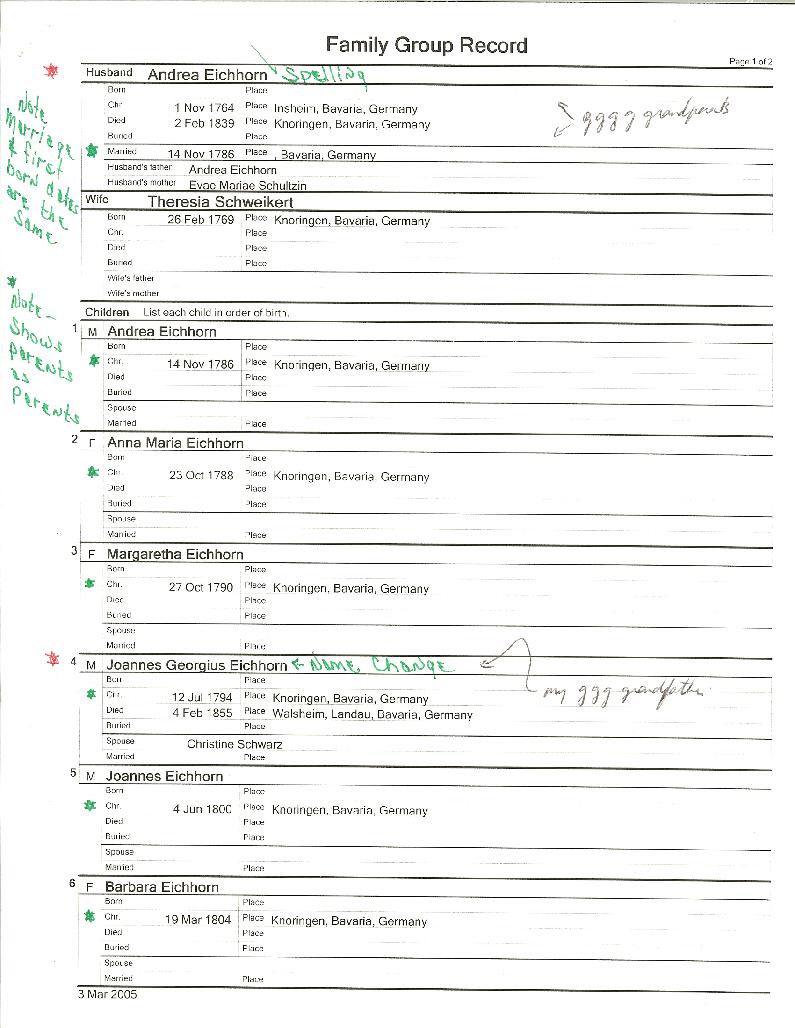 Family Group Record
Page 1 of 2
Husband Andrea Eichhorn Spelling
Born Place
Chr. 1 Nov 1764 Place Insheim, Bavaria, Germany
Died 2 Feb 1839 Place Knoringen, Bavaria, Germany
Buried Place
gggg grandparents
Married 14 Nov 1786 Place , Bavaria, Germany
Husband's father Andrea Eichhorn
Husband's mother Evae Mariae Schultzin
Note
Marriage
& first
born dates
are the
same
Wife Theresia Schweikert
Born 26 Feb 1769 Place Knoringen, Bavaria, Germany
Chr. Place
Died Place
Buried Place
Wife's father
Wife's mother
Children List each child in order of birth.
Note-
Shows
parents
as
Parents
1 M Andrea Eichhorn
Born Place
Chr. 14 Nov 1786 Place Knoringen, Bavaria, Germany
Died Place
Buried Place
Spouse
Married Place
2 F Anna Maria Eichhorn
Born Place
Chr. 23 Oct 1788 Place Knoringen, Bavaria, Germany
Died Place
Buried Place
Spouse
Married Place
3 F Margaretha Eichhorn
Born Place
Chr. 27 Oct 1790 Place Knoringen, Bavaria, Germany
Died Place
Buried Place
Spouse
Married Place
4 M Joannes Georgius Eichhorn Name Change
Born Place
Chr. 12 Jul 1794 Place Knoringen, Bavaria, Germany
my ggg grandfather
Died 4 Feb 1855 Place Walsheim, Landau, Bavaria, Germany
Buried Place
Spouse Christine Schwarz
Married Place
5 M Joannes Eichhorn
Born Place
Chr. 4 Jun 1800 Place Knoringen, Bavaria, Germany
Died Place
Buried Place
Spouse
Married Place
6 F Barbara Eichhorn
Born Place
Chr. 19 Mar 1804 Place Knoringen, Bavaria, Germany
Died Place
Buried Place
Spouse
Married Place
3 Mar 2005